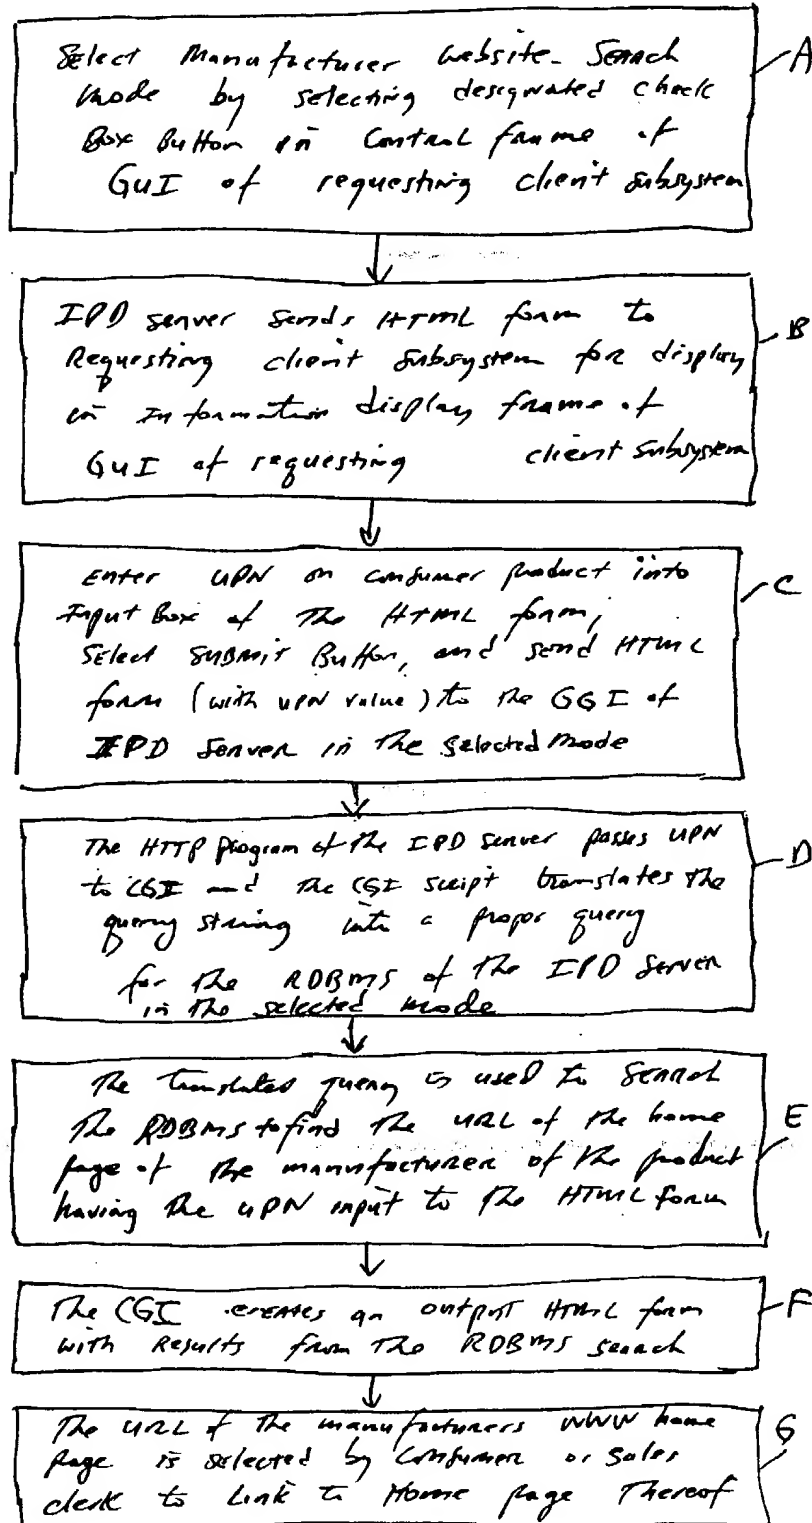 Select Manufacturer Website-Search
Mode by selecting designated check
Box Button in Control frame of
GUI of requesting client subsystem
A
IPD server sends HTML form to
Requesting client subsystem for display
in Information display frame of
GUI of requesting client subsystem
B
Enter UPN on consumer product into
Input Box of The HTML form,
Select SUBMIT Button, and send HTML
form (with UPN value) to the GGI of
IPD Server in The selected Mode
C
The HTTP program of the IPD server passes UPN
to CGI and the CGI script translates the
query string into a proper query
for the RDBMS of the IPD Server
in The selected mode
D
The translated query is used to Search
The RDBMS to find the URL of the home
page of the manufacturer of the product
having the UPN input to the HTML form
E
The CGI creates an output HTML form
with Results from The RDBMS search
F
The URL of The manufacturers WWW home
page is selected by Consumer or Sales
clerk to Link to Home page Thereof
G